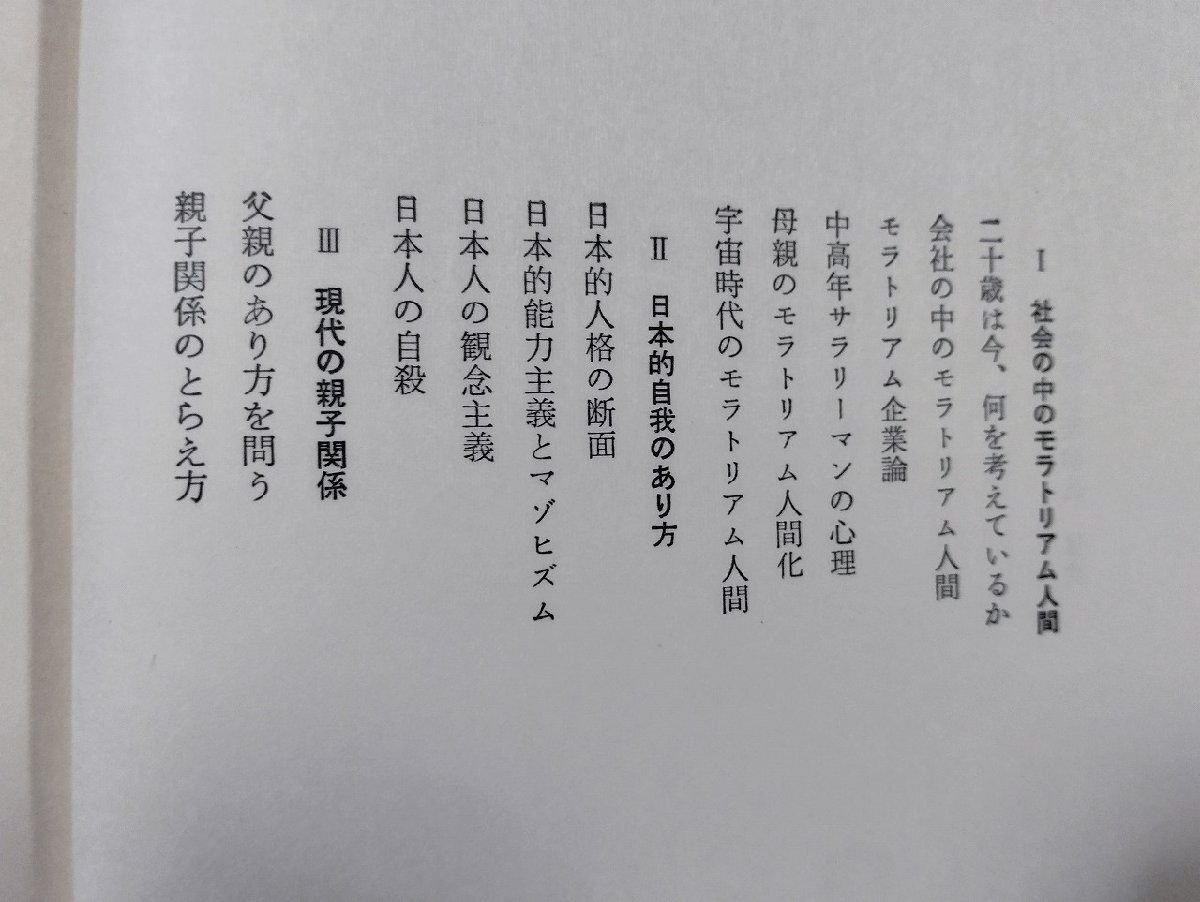 Ⅰ 社会の中のモラトリアム人間
二十歳は今、何を考えているか
会社の中のモラトリアム人間
モラトリアム企業論
中高年サラリーマンの心理
母親のモラトリアム人間化
宇宙時代のモラトリアム人間
Ⅱ 日本的自我のあり方
日本的人格の断面
日本的能力主義とマゾヒズム
日本人の観念主義
日本人の自殺
Ⅲ 現代の親子関係
父親のあり方を問う
親子関係のとらえ方